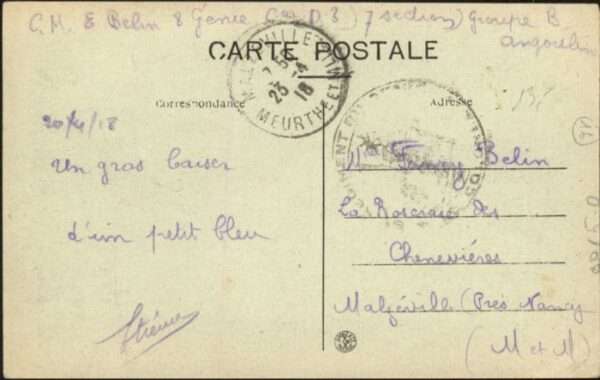 C.M. E Belin 8 Génie Cie D 8) 7 section) groupe B
angoulin
CARTE POSTALE
MALZÉVILLE
23 -4
18
MEURTHE ET
Correspondance
Adresse
20/4/18
un gros baiser
d'un petit bleu
Étienne
Fanny Belin
La Roseraie des
Chenevières
Malzéville (Près Nancy
(M et M)